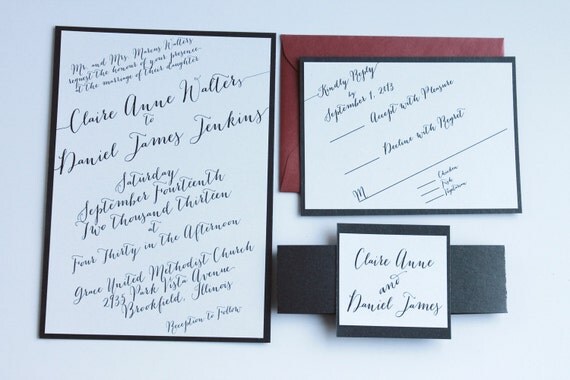 Mr. and Mrs. Marcus Walters
request the honour of your presence
at the marriage of their daughter
Claire Anne Walters
to
Daniel James Jenkins
Saturday
September Fourteenth
Two thousand thirteen
at
Four Thirty in the Afternoon
Grace United Methodist Church
2935 Park Vista Avenue
Brookfield, Illinois
Reception to Follow
Kindly Reply
by
September 1, 2013
Accept with Pleasure
Decline with Regret
M
Chicken
Fish
Vegetarian
Claire Anne
and
Daniel James